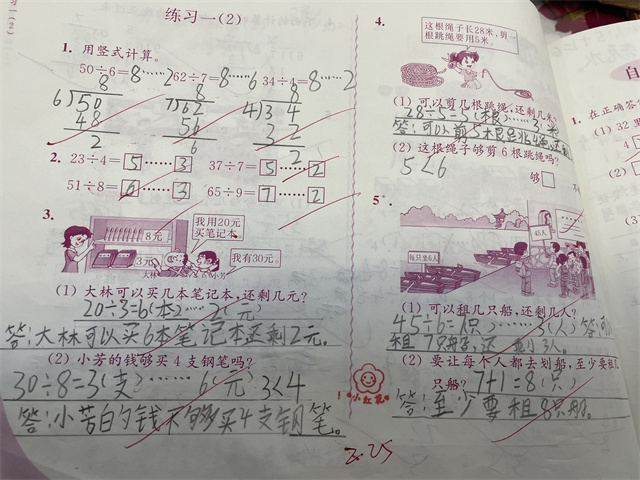 练习一(2)
1. 用竖式计算。
50÷6=8……2 62÷7=8……6 34÷4=8……2
8 8 8
6 50 7 62 4 34
48 56 32
2 6 2
2. 23÷4=5……3 37÷7=5……2
51÷8=6……3 65÷9=7……2
3.
我用20元
买笔记本。
8元
3元
我有30元。
大林
小芳
(1) 大林可以买几本笔记本,还剩几元?
20÷3=6(本)……2(元)
答:大林可以买6本笔记本还剩2元。
(2) 小芳的钱够买4支钢笔吗?
30÷8=3(支)……6(元) 3<4
答:小芳的钱不够买4支钢笔。
4.
这根绳子长28米,剪一
根跳绳要用5米。
(1) 可以剪几根跳绳,还剩几米?
28÷5=5(根)……3
(2) 这根绳子够剪6根跳绳吗?
5<6
够
5.
45人
每只坐6人
(1) 可以租几只船,还剩几人?
45÷6=7(只)……3(人) 答:可以
租7只船,还剩3人。
(2) 要让每个人都去划船,至少要租几
只船? 7+1=8(只)
答:至少要租8只船。
小红花
3.25
1. 在正确答
(1) 32里
4
(2)
(3)